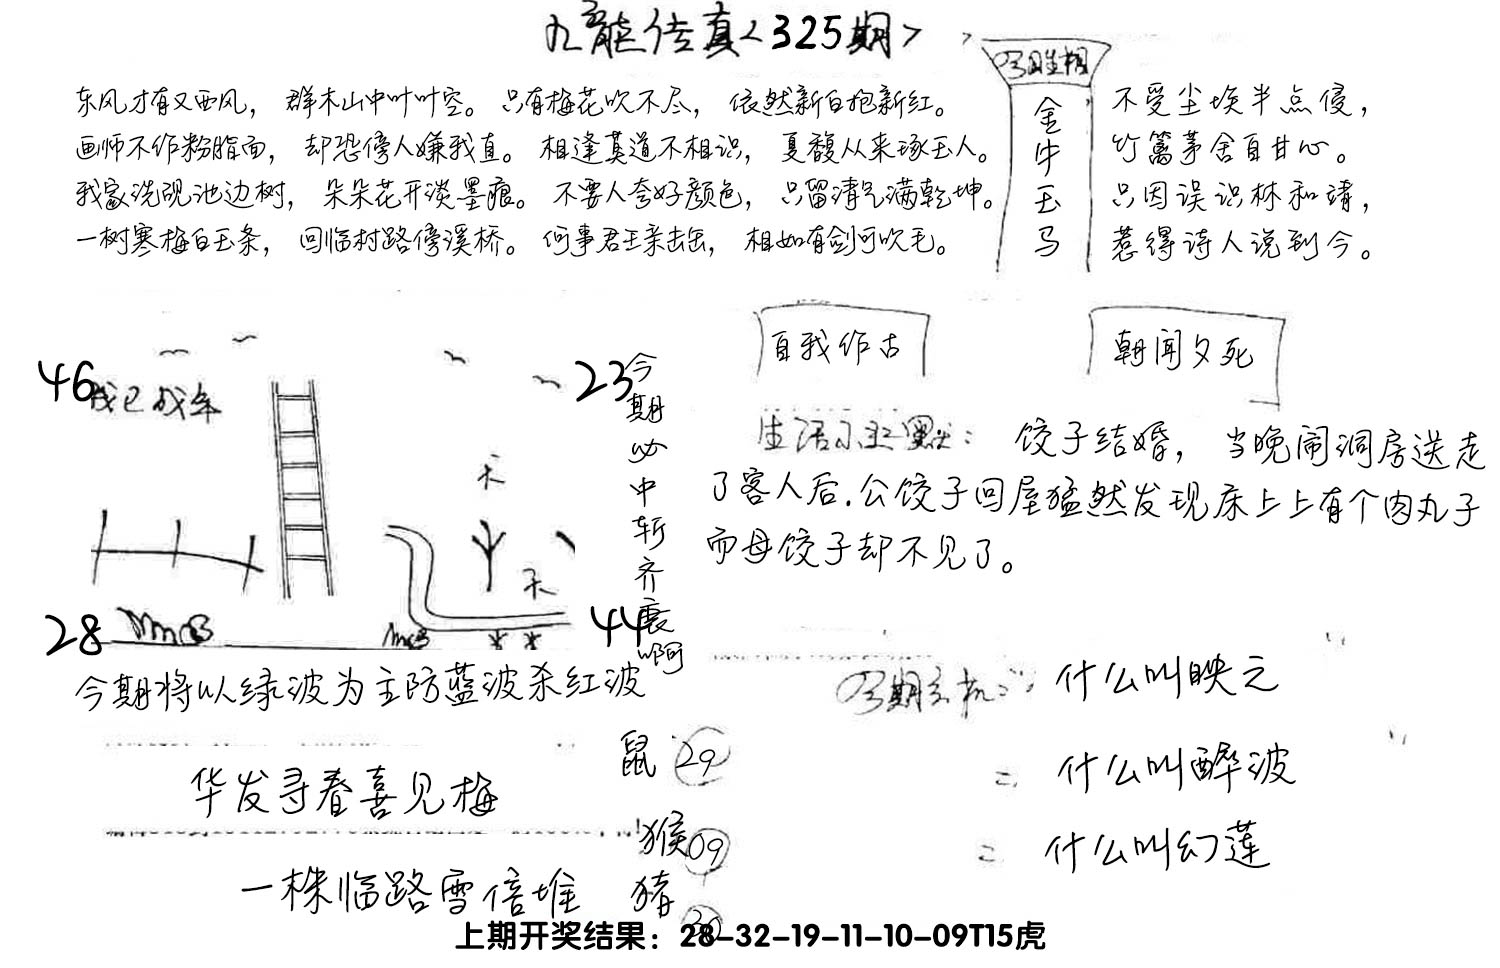 九龍传真<325期>
东风才有又西风，群木山中叶叶空。只有梅花吹不尽，依然新白抱新红。
画师不作粉脂面，却恐傍人嫌我直。相逢莫道不相识，夏馥从来琢玉人。
我家洗砚池边树，朵朵花开淡墨痕。不要人夸好颜色，只留清气满乾坤。
一树寒梅白玉条，回临村路傍溪桥。何事君王亲击缶，相如有剑可吹毛。
今日生相
金
牛
玉
马
不受尘埃半点侵，
竹篱茅舍自甘心。
只因误识林和靖，
惹得诗人说到今。
46
23
天
天
28
44
今期必中斩齐裹啊
今期将以绿波为主防蓝波杀红波
自我作古
朝闻夕死
生活小幽默：饺子结婚，当晚闹洞房送走
了客人后.公饺子回屋猛然发现床上上有个肉丸子
而母饺子却不见了。
今期玄机：什么叫映之
二 什么叫醉波
二 什么叫幻莲
华发寻春喜见梅
一株临路雪倍堆
鼠 29
猴 09
猪 30
上期开奖结果：28-32-19-11-10-09T15虎